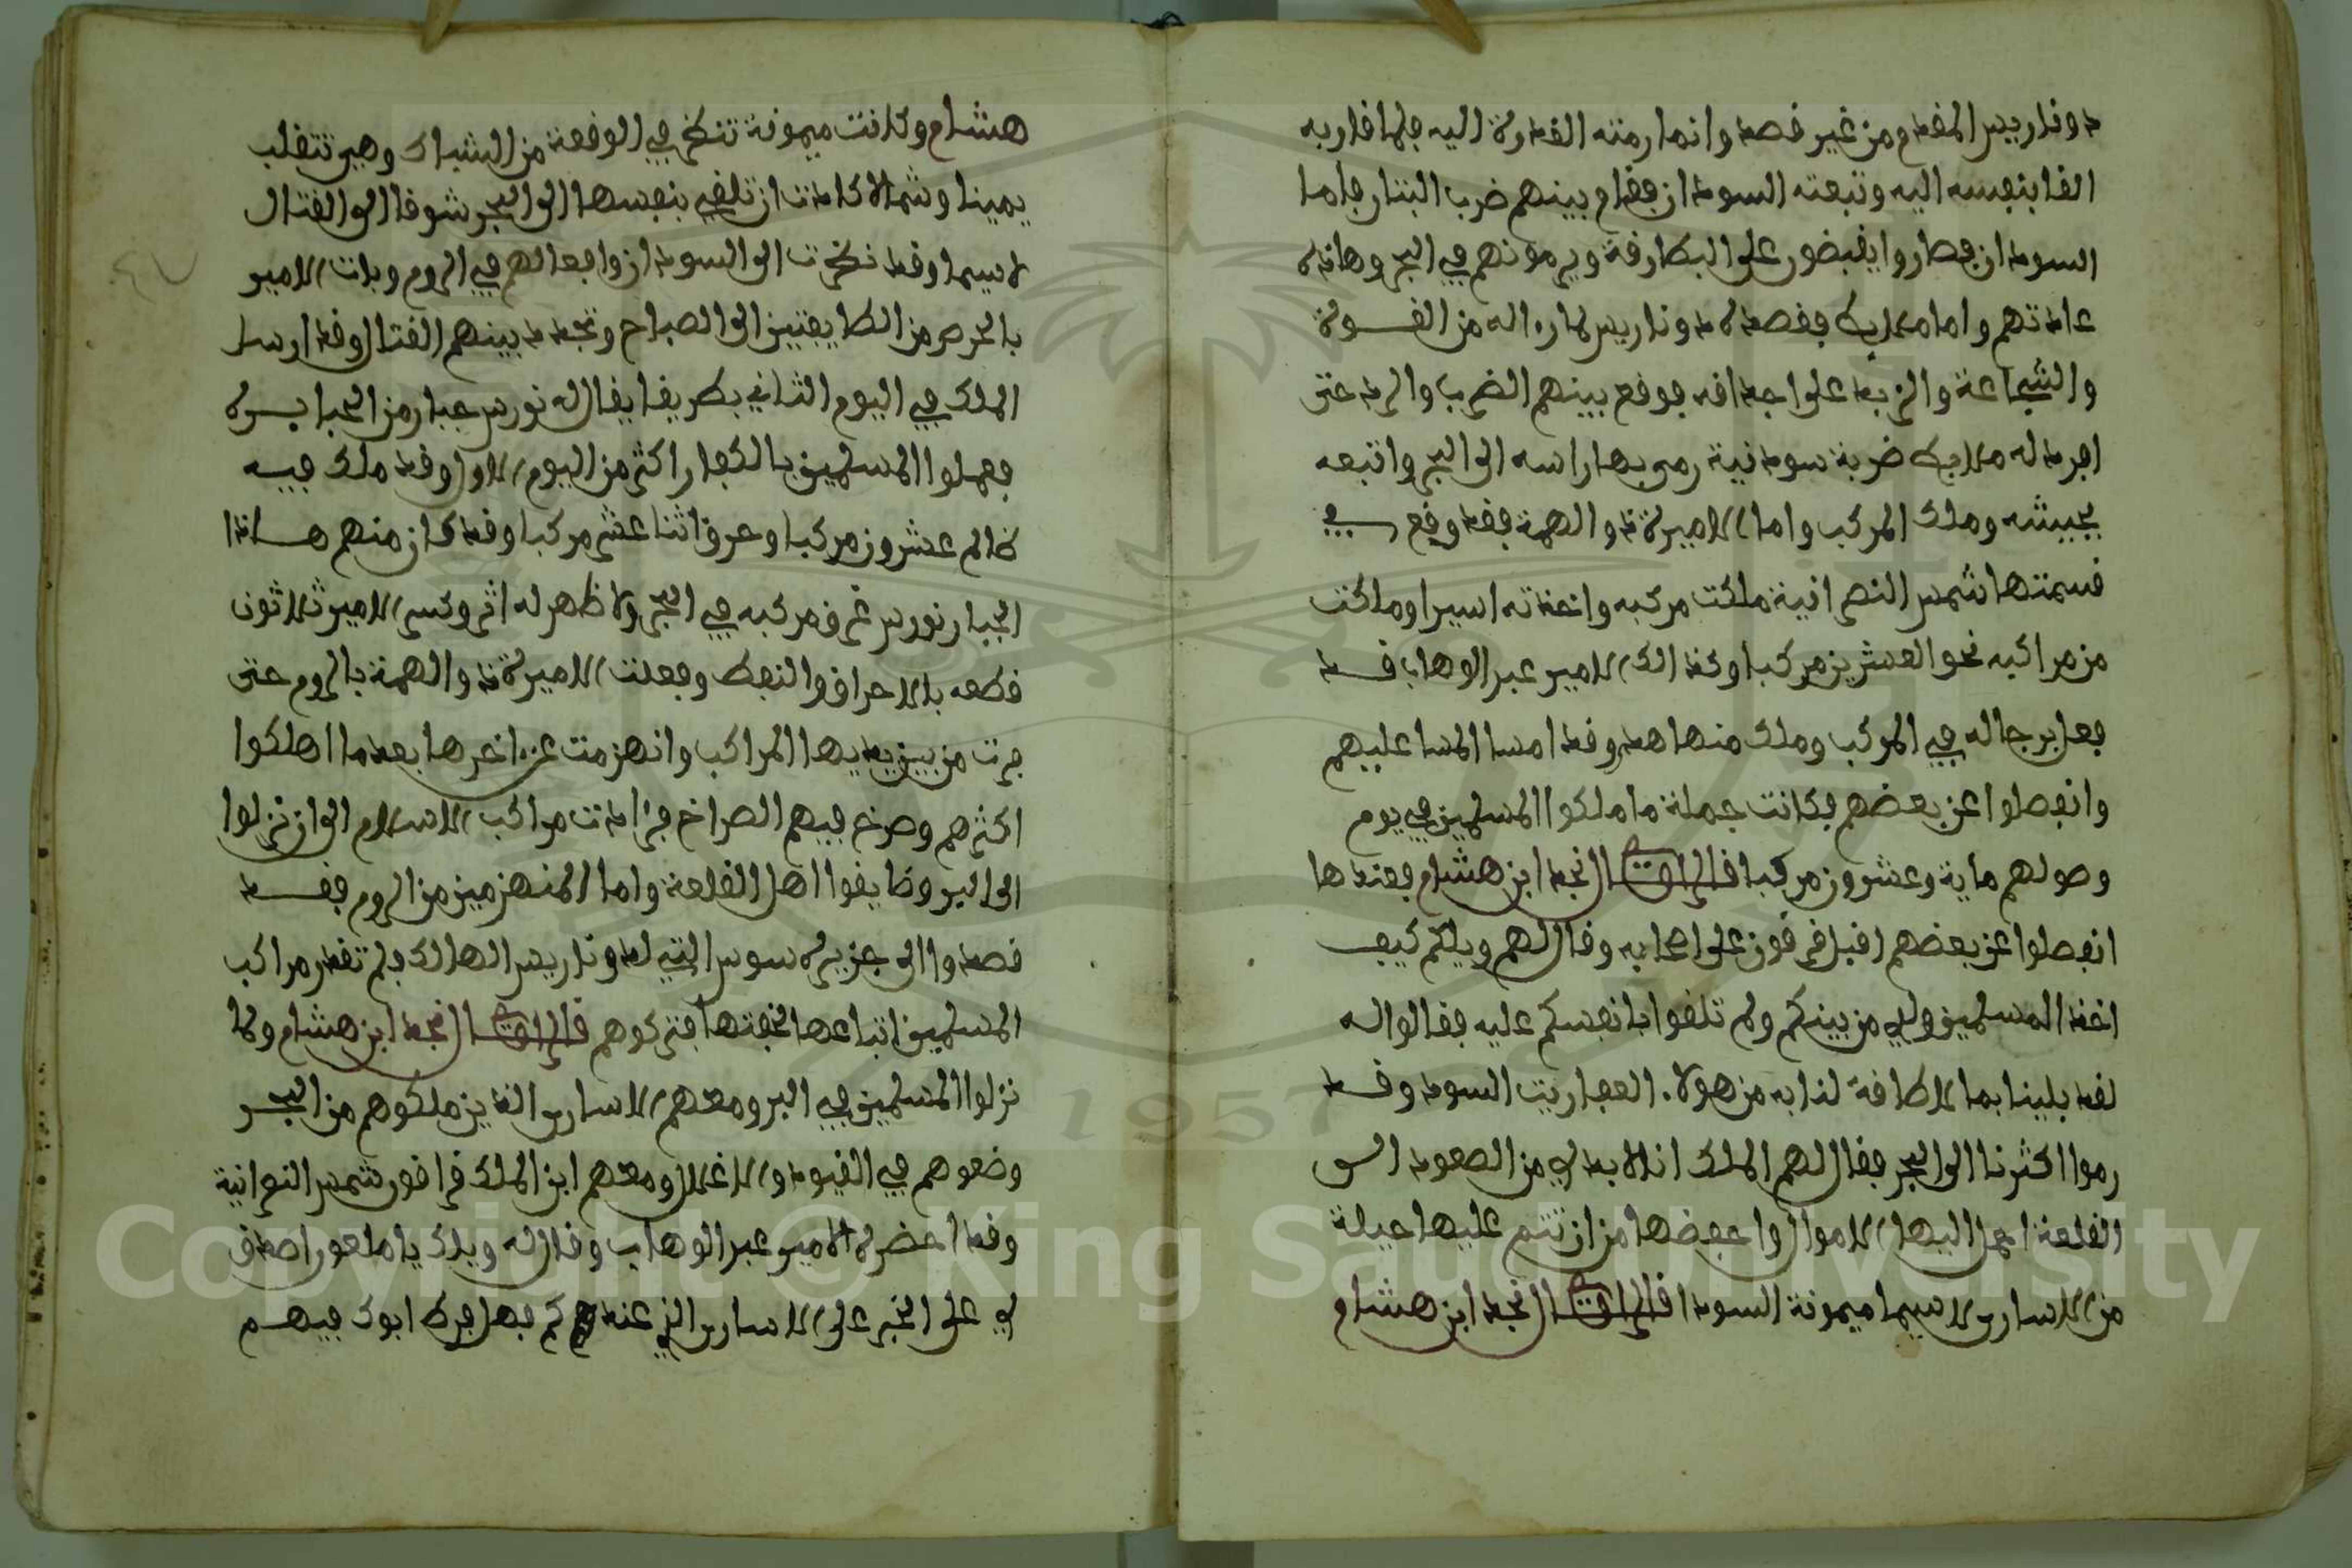 دوناريس المقدم ومن غير قصد وانما رمته القدرة اليه فلما قاربه
القا بنفسه اليه وتبعته السودان فقام بينهم ضرب البتار فاما
السودان فصاروا يقبضون على البطارقة ويرمونهم في البحر وهاذه
عادتهم واما ملايط فقصد لدوناريس لما راء اله من القوة
والشجاعة والزبد على اجدافه فوقع بينهم الضرب والرد حتى
افرد له ملايط ضربة سودانية رمى بها راسه الى البحر واتبعه
بجيشه وملك المركب واما الاميرة ذو الهمة فقد وقع في
قسمتها شمس النصرانية ملكت مركبه واخذته اسيرا وملكت
من مراكبه نحو العشرين مركبا وكذالك الامير عبد الوهاب قد
فعل برجاله في المركب وملك منها هد وقد امسا المسا عليهم
وانفصلوا عن بعضهم فكانت جملة ما ملكوا المسلمين في يوم
وصولهم ماية وعشرون مركبا قال الراوي نجد ابن هشام فعندها
انفصلوا عن بعضهم اقبل قرقون على اصحابه وقال لهم ويلكم كيف
اخذ المسلمين ولدي من بينكم ولم تلقوا بانفسكم عليه فقالوا له
لقد بلينا بما لا طاقة لنا به من هولاء العفاريت السود وقد
رموا اكثرنا الى البحر فقال لهم الملك انا لا بد لي من الصعود الى
القلعة احمل اليها الاموال واحفضها من ان تتم عليها حيلة
من الاسارى لا سيما ميمونة السودا قال الراوي نجد ابن هشام
هشام وكانت ميمونة تنظر في الوقعة من الشباك وهي تتقلب
يمينا وشمالا كادت ان تلقي بنفسها الى البحر شوقا الى القتال
لا سيما وقد نظرت الى السودان وافعالهم في الروم وبات الامير
بالحرص من الطايفتين الى الصباح وتجدد بينهم القتال وقد ارسل
الملك في اليوم الثاني بطريقا يقال له نورس جبار من الجبابرة
فعملوا المسلمين بالكفار اكثر من اليوم الاول وقد ملك فيه
ظالم عشرون مركبا وحرق اثنا عشر مركبا وقد كان منهم هاذا
الجبار نورس غرق مركبه في البحر ولا ظهر له اثر وكسر الامير ثلاثون
قطعه بالاحراق والنفط وفعلت الاميرة ذو الهمة بالروم حتى
فرت من بين يديها المراكب وانهزمت عن اخرها بعد ما اهلكوا
اكثرهم وصرخ فيهم الصراخ فزادت مراكب الاسلام الى ان نزلوا
الى البر وضايقوا اهل القلعة واما المنهزمين من الروم فقد
قصدوا الى جزيرة سوس التي لدوناريس الهالك ولم تقدر مراكب
المسلمين اتباعها لخفتها فتركوهم قال الراوي نجد ابن هشام ولما
نزلوا المسلمين في البر ومعهم الاسارى الذين ملكوهم من البحر
وضعوهم في القيود والاغلال ومعهم ابن الملك قراقون شمس النصرانية
وقد احضره الامير عبد الوهاب وقال له ويلك يا ملعون اصدق
لي على الخبر على الاسارى الذي عندكم فهل فرط ابوك فيهم